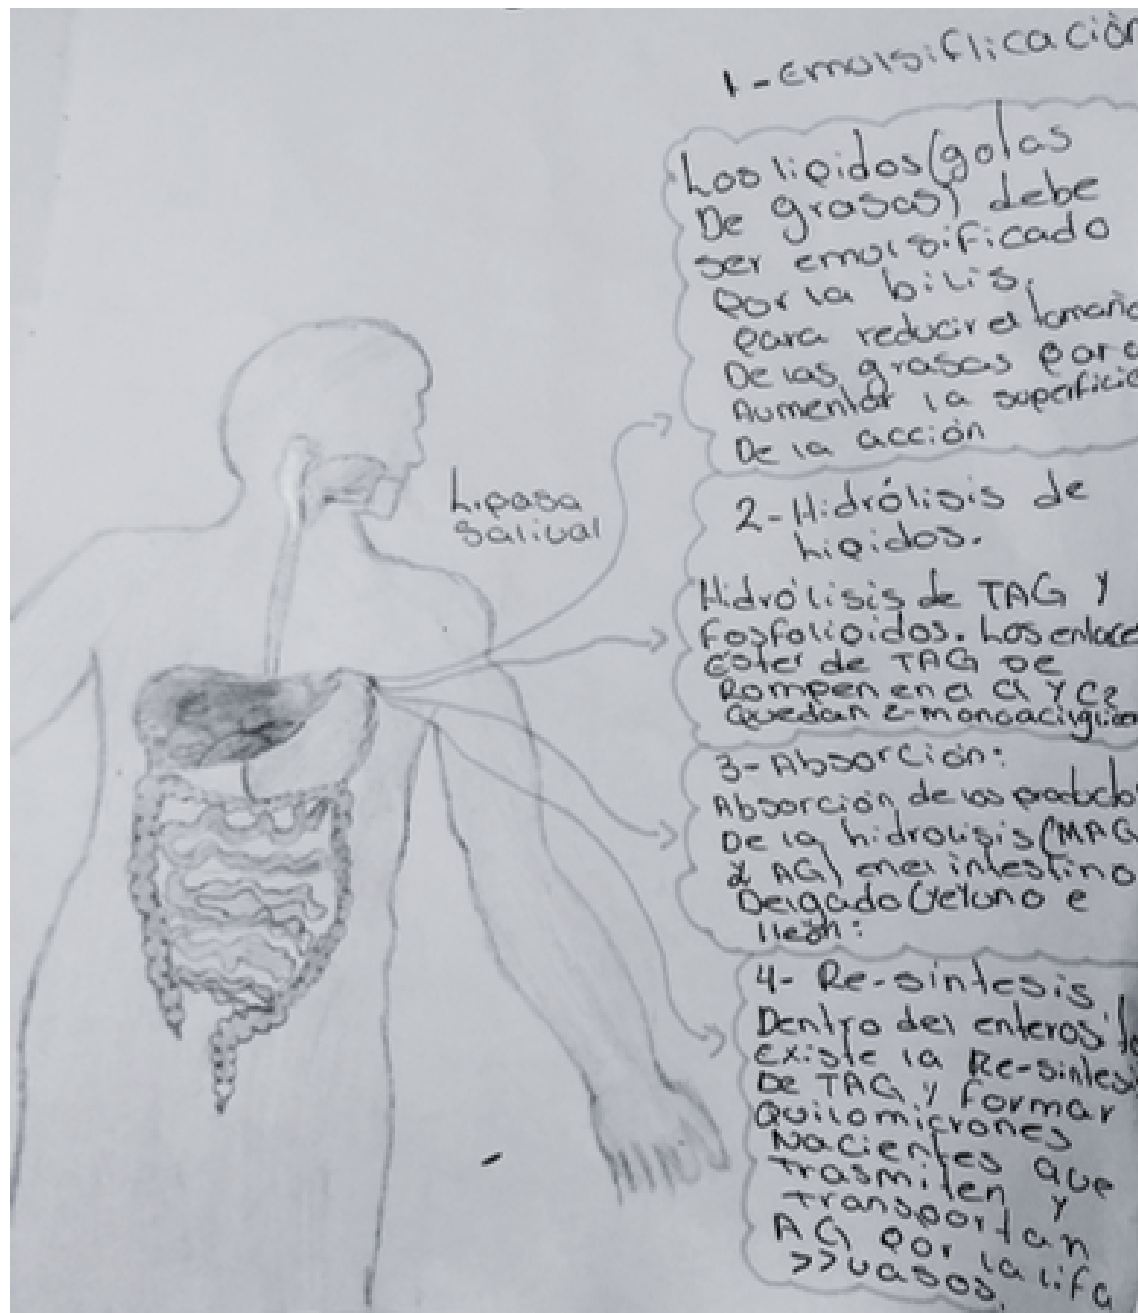 1-emulsiflicación
Los lipidos (gotas
De grasas) debe
ser emulsificado
Por la bilis,
para reducir el tamaño
De las grasas para
Aumentar la superficie
De la acción
Lipasa
Salival
2-Hidrólisis de
Lipidos.
Hidrólisis de TAG y
Fosfolipidos. Los enlace
éster de TAG se
Rompen en el C1 y C3
Quedan 2-monoacilglicer
3-Absorción:
Absorción de los producto
De la hidrolisis (MAG
y AG) en el intestino
Delgado (yeyuno e
Ileon:
4- Re-sintesis
Dentro del enterosito
existe la Re-sintesis
De TAG y formar
Quilomicrones
Nacientes que
trasmiten y
transportan
AG por la lifa
>>vasos.